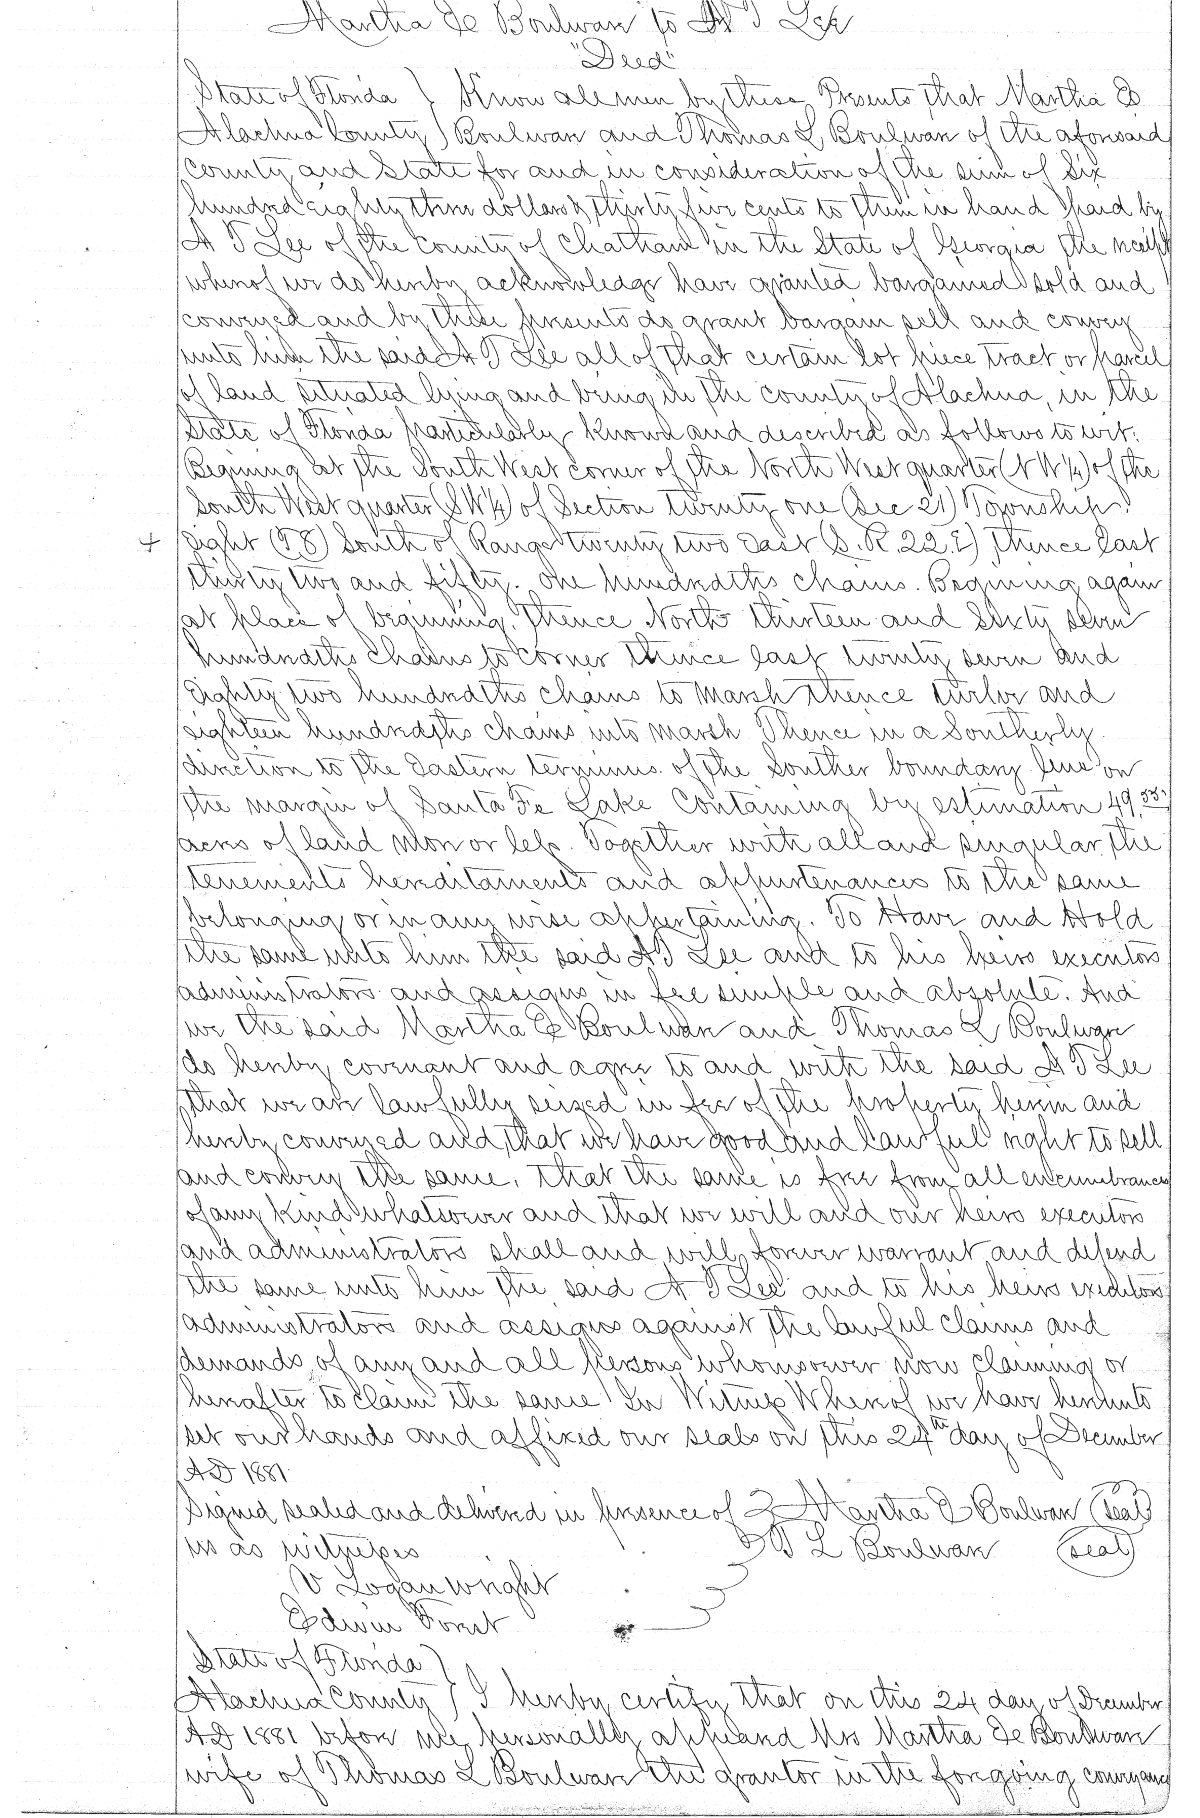 Martha E Boulware to A T Lee
"Deed"
State of Florida } Know all men by these Presents that Martha E
Alachua County } Boulware and Thomas L Boulware of the aforesaid
county and State for and in consideration of the sum of Six
hundred eighty three dollars & thirty five cents to them in hand paid by
A T Lee of the County of Chatham in the State of Georgia the receipt
whereof we do hereby acknowledge have granted bargained sold and
conveyed and by these presents do grant bargain sell and convey
unto him the said A T Lee all of that certain lot piece tract or parcel
of land situated lying and being in the county of Alachua, in the
State of Florida particularly known and described as follows to wit:
Begining at the South West corner of the North West quarter (N W ¼) of the
South West quarter (S W ¼) of Section twenty one (Sec 21) Township
+ Eight (T 8) South of Range twenty two East (S. R. 22. E) Thence East
thirty two and fifty. one hundredths chains. Begining again
at place of beginning. Thence North thirteen and Sixty seven
hundredths chains to corner thence East twenty seven and
Eighty two hundredths chains to Marsh thence twelve and
eighteen hundredths chains into Marsh Thence in a Southerly
direction to the Eastern terminus of the Souther boundary line on
the margin of Santa Fe Lake Containing by estimation 49.55
acres of land more or less. Together with all and singular the
tenements hereditaments and appurtenances to the same
belonging or in any wise appertaining. To Have and Hold
the same unto him the said A T Lee and to his heirs executors
administrators and assigns in fee simple and absolute. And
we the said Martha E Boulware and Thomas L Boulware
do hereby covenant and agree to and with the said A T Lee
that we are lawfully seized in fee of the property herein and
hereby conveyed and that we have good and lawful right to sell
and convey the same, that the same is free from all encumbrances
of any kind whatsoever and that we will and our heirs executors
and administrators shall and will forever warrant and defend
the same unto him the said A T Lee and to his heirs executors
administrators and assigns against the lawful claims and
demands of any and all persons whomsoever now claiming or
hereafter to claim the same In Witness Whereof we have hereunto
set our hands and affixed our seals on this 24th day of December
A D 1881
Signed sealed and delivered in presence of } Martha E Boulware (seal)
us as witnesses } T L Boulware (seal)
V Logan wright
Edwin Forest
State of Florida }
Alachua County } I hereby certify that on this 24 day of December
A D 1881 before me personally appeared Mrs Martha E Boulware
wife of Thomas L Boulware the grantor in the foregoing conveyance